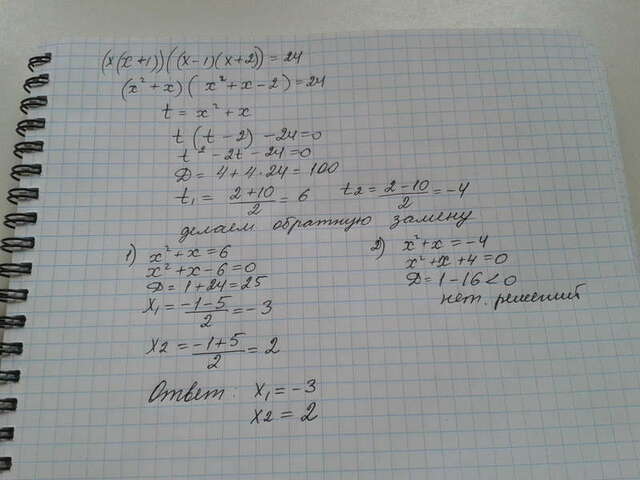 (x(x+1))((x-1)(x+2))=24
(x²+x)(x²+x-2)=24
t=x²+x
t(t-2)-24=0
t²-2t-24=0
D=4+4·24=100
t₁=(2+10)/2=6 t2=(2-10)/2=-4
делаем обратную замену
1) x²+x=6
x²+x-6=0
D=1+24=25
x₁=(-1-5)/2=-3
x2=(-1+5)/2=2
2) x²+x=-4
x²+x+4=0
D=1-16<0
нет. решений
Ответ: x₁=-3
x2=2